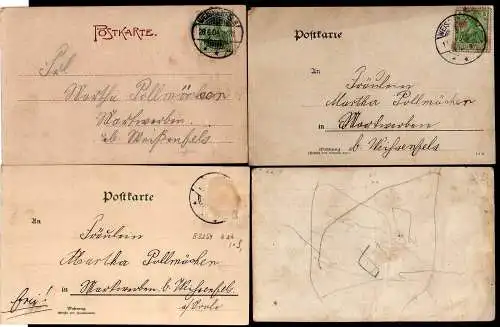 POSTKARTE.
Frl
Martha Pollmächer
Markwerben
b/ Weißenfels
Postkarte
An
Fräulein
Martha Pollmächer
in Markwerben
b. Weißenfels
Postkarte
An
Fräulein
Martha Pollmächer
in Markwerben b. Weissenfels
a/Saale
frei!
Wohnung